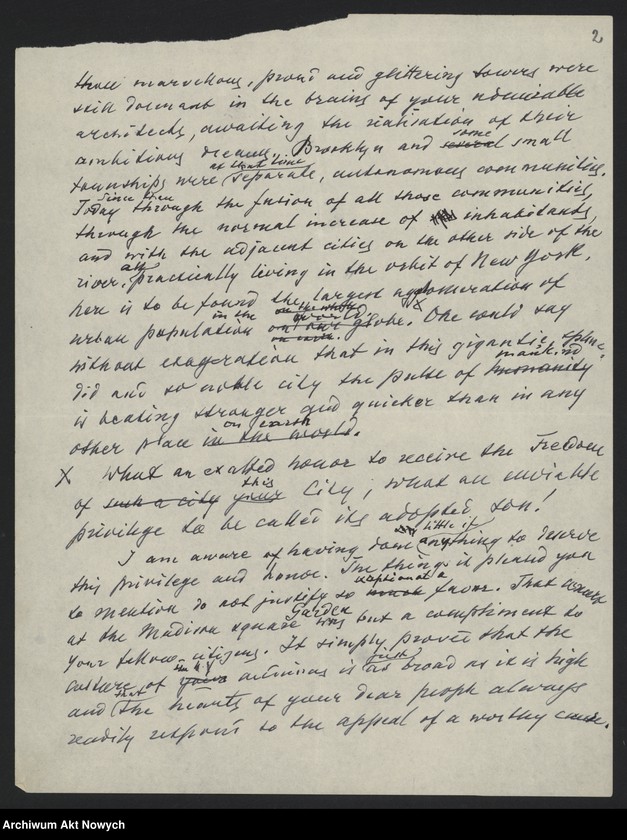 2
those marvellous, proud and glittering towers were
still dormant in the brains of your admirable
architects, awaiting the realisation of their
ambitious dreams. Brooklyn and several some small
townships were at that time separate, autonomous communities.
Today Since then through the fusion of all those communities,
through the normal increase of inhabitants,
and with the adjacent cities on the other side of the
river, all practically living in the orbit of New York,
here is to be found the largest agglomeration of
urban population in the on our globe. One could say
without exageration that in this gigantic, splen-
did and so noble city the pulse of humanity mankind
is beating stronger and quicker than in any
other place in the world on earth.
X What an exalted honor to receive the Freedom
of such a city your this City; what an enviable
privilege to be called its adopted son!
I am aware of having done little if anything to deserve
this privilege and honor. The things it pleased you
to mention do not justify so much exceptional a favor. That
at the Madison Square Garden was but a compliment to
your fellow-citizens. It simply proved that the
culture of your is as broad as it is high
and that the hearts of your dear people always
readily respond to the appeal of a worthy cause.
Archiwum Akt Nowych